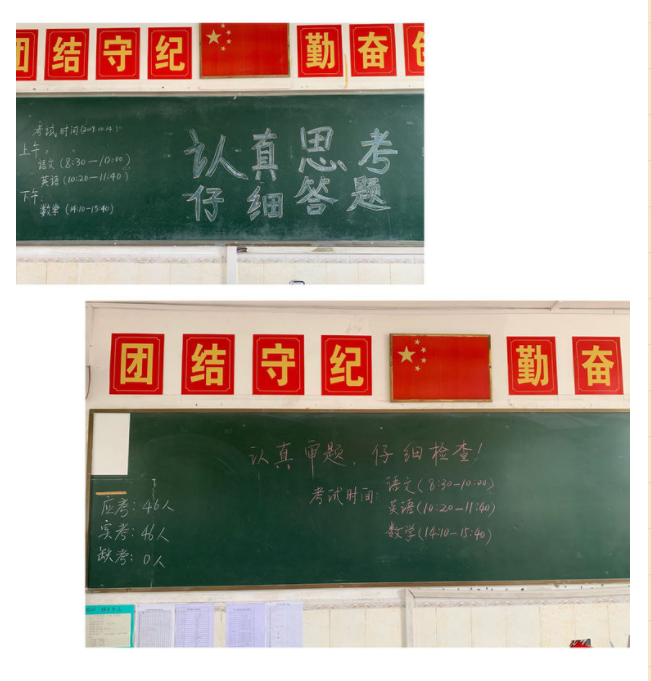 团结守纪 勤奋
考试时间(2019.10.14)
上午
语文(8:30—10:00)
英语(10:20—11:40)
下午
数学(14:10—15:40)
认真思考
仔细答题
团结守纪 勤奋
认真审题，仔细检查！
考试时间：语文(8:30—10:00)
英语(10:20—11:40)
数学(14:10—15:40)
应考：46人
实考：46人
缺考：0人